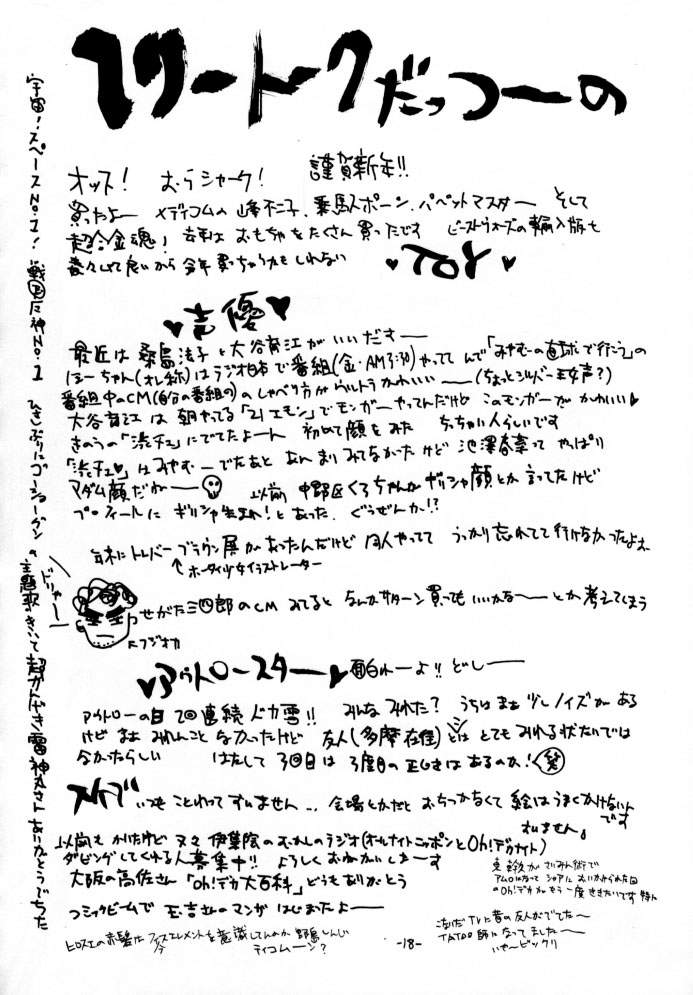 フリートークだっつーの
オッス! むらシャーク! 謹賀新年!!
買ったよー メディコムの峰不二子、乗馬スポーン、パペットマスター そして
超合金魂! 去年は おもちゃをたくさん買ったです ビーストウォーズの輸入版も
して良いから今年買っちゃうかもしれない ♥TOY♥
♥声優♥
最近は 桑島法子と大谷育江がいいだすー
ほーちゃん(オレ称)はラジオ日本で番組(金・AM3:30)やってて んで「みやむーの直球で行こう」の
番組中のCM(自分の番組の)のしゃべり方がウルトラかわいいー(ちょっとシルバー王女声?)
大谷育江は 朝やってる「21エモン」でモンガーやってんだけど このモンガーが かわいい♥
きのうの「渋チェ」にでてたよーん 初めて顔をみた ちっちゃい人らしいです
「渋チェ♥」はみやむーでたあと あんまりみてなかったけど 池澤春菜って やっぱり
マダム顔だがー 以前 中野区くろちゃんが ギリシャ顔とか言ってたけど
プロフィールに ギリシャ生まれ!とあった、ぐうぜんか!?
年末にトレバーブラウン展があったんだけど 同人やってて うっかり忘れてて行けなかったよォ
↑ホータイ少女イラストレーター
ドリャー
せがた三四郎のCM みてると なんかサターン買ってもいいかなーとか考えてしまう
フジオカ
♥アウトロースター♥ 面白れーよ!! どしー
アウトローの日2回連続ドカ雪!! みんなみれた? うちはまぁ少しノイズがある
けど まぁみれんことなかったけど 友人(多摩在住)とはとてもみれる状たいでは
なかったらしい はたして3回目は 3度目の正じきはあるのか!(笑)
スケブ いつもことわってすいません… 会場とかだと おちつかなくて 絵はうまくかけないんです
すいません。
以前もかいたけど 又々 伊集院のむかしのラジオ(オールナイトニッポンとOh!デカナイト)
ダビングしてくれる人募集中!! よろしくおねがいしまーす
大阪の高佐さん「Oh!デカ大百科」どうもありがとう
コミックビームで 玉吉さんのマンガ はじまったよー
ヒロスエの赤髪は フィフスエレメントを意識してんのか 野島しんじ
ティコムーン?
がさいみん術で
アムロになって シャアに おいかけられた回
のOh!デカが もう一度ききたいです
こないだTVに昔の友人がでてたー
TATOO師になってましたー
いやービックリ
-18-
宇宙!スペースNo.1! 戦国魔神No.1 ひさしぶりにゴーショーグンの主題歌きいて超かんげき 雷神丸さん ありがとうでちた